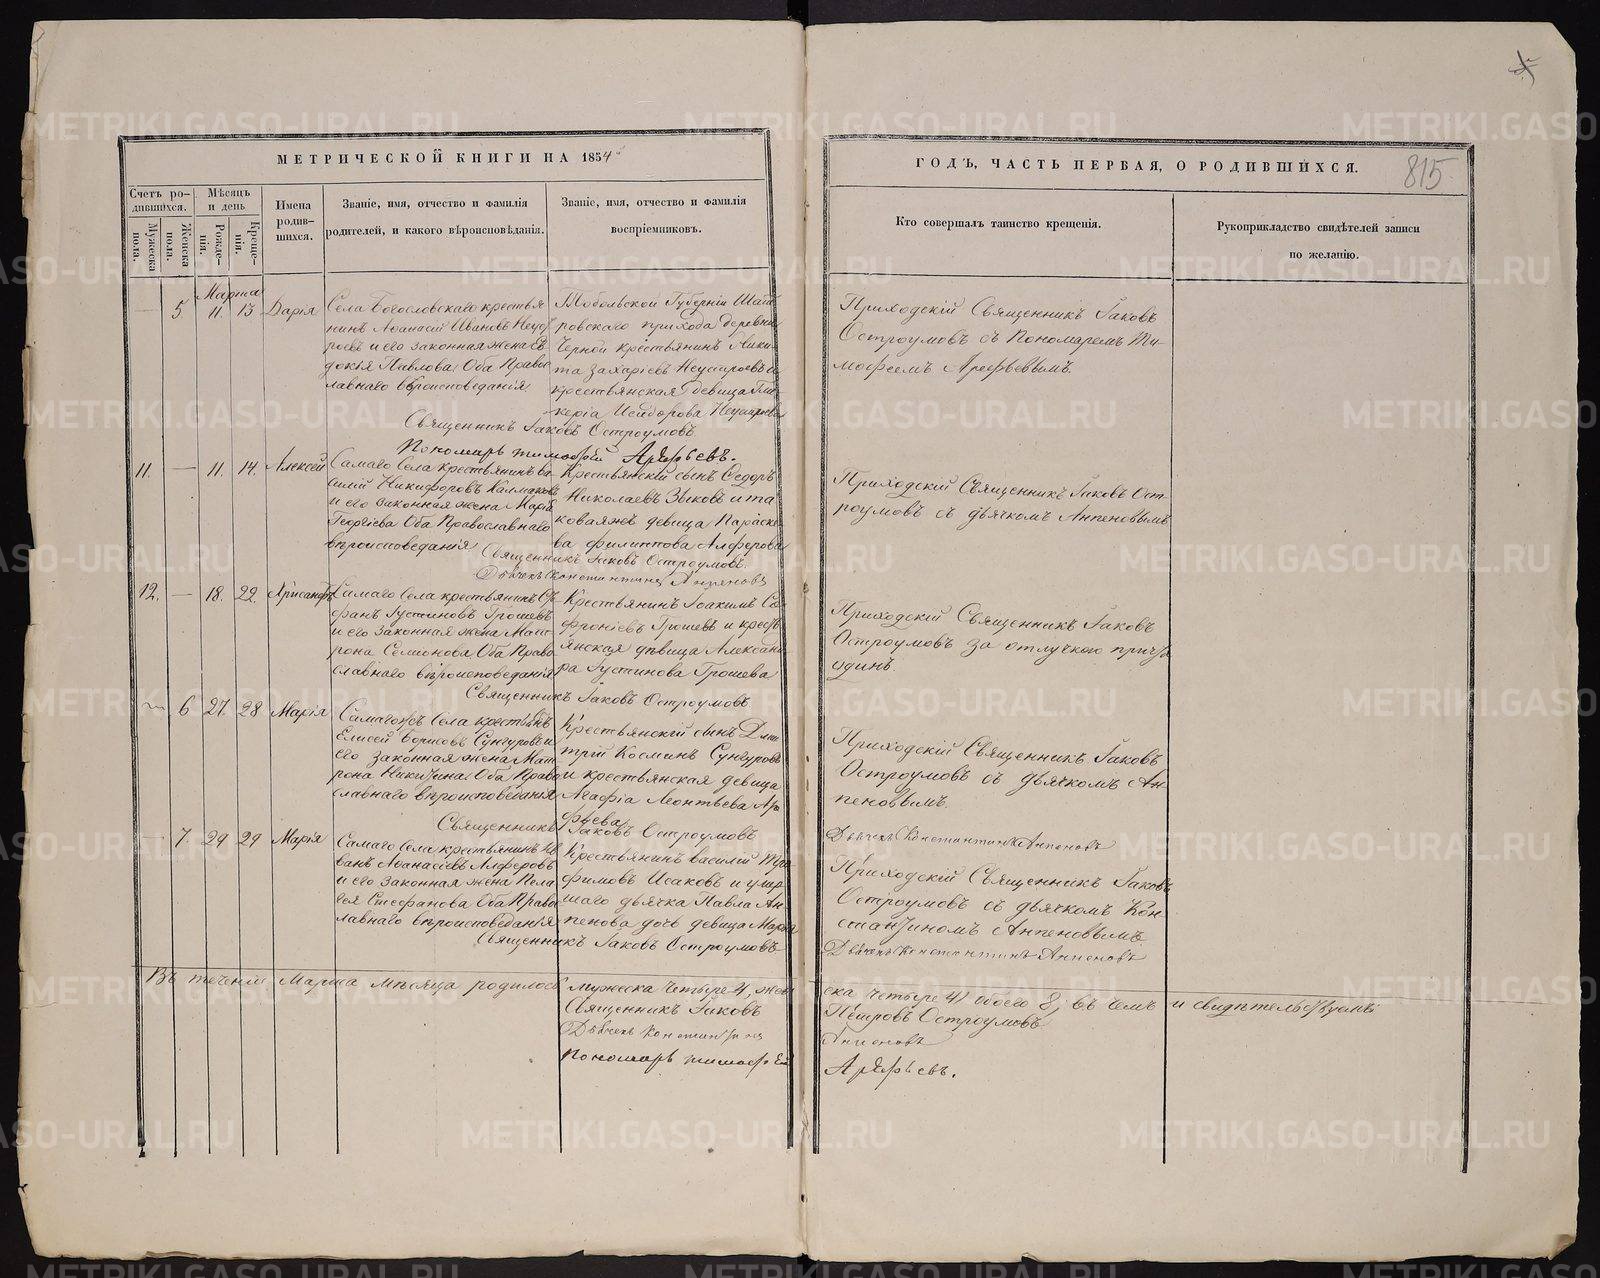 МЕТРИЧЕСКОЙ КНИГИ НА 1854
ГОДЪ, ЧАСТЬ ПЕРВАЯ, О РОДИВШИХСЯ.
815
Счетъ ро-
дившихся.
Мужеска
пола.
Женска
пола.
Мѣсяцъ
и день
Рожде-
нія.
Креще-
нія.
Имена
родив-
шихся.
Званіе, имя, отчество и фамилія
родителей, и какого вѣроисповѣданія.
Званіе, имя, отчество и фамилія
воспріемниковъ.
Кто совершалъ таинство крещенія.
Рукоприкладство свидѣтелей записи
по желанію.
Марта
5 11. 13 Дарія
Села Богословскаго крестья
нинъ Аѳанасій Ивановъ Неуст
роевъ и его законная жена Ев
докія Павлова Оба Право
славнаго вѣроисповеданія.
Тобольской Губерніи Шат
ровскаго прихода деревни
Черной крестьянинъ Ники
та Захаріевъ Неустроевъ и
крестьянская девица Гли
керія Исидорова Неустроева
Приходскій Священникъ Іаковъ
Остроумовъ съ Пономаремъ Ти-
мофеемъ Арефьевымъ.
Священникъ Іаковъ Остроумовъ
Пономарь тимофей Арефьевъ.
11. — 11. 14. Алексей
Самаго Села крестьянинъ Ва
силій Никифоровъ Калмаковъ
и его законная жена Марія
Георгіева Оба Православнаго
вѣроисповеданія
Крестьянскій сынъ Федоръ
Николаевъ Зыковъ и та
коваяжъ девица Параске
ва филиппова Алферова
Приходскій Священникъ Іаковъ Ост
роумовъ съ дьячкомъ Анпеновымъ
Священникъ Іаковъ Остроумовъ.
Дьячекъ Константинъ Анпеновъ
12. — 18. 22. Хрисанфъ
Самаго Села крестьянинъ Сте
фанъ Густиновъ Грошевъ
и его законная жена Мат
рона Семионова Оба Право
славнаго вѣроисповеданія
Крестьянинъ Іоакимъ Со
фроніевъ Грошевъ и кресть
янская дѣвица Александ
ра Густинова Грошева
Приходскій Священникъ Іаковъ
Остроумовъ за отлучкою причта
одинъ.
Священникъ Іаковъ Остроумовъ
6 27. 28 Марія
Самагожъ Села крестьянинъ
Елисей Борисовъ Сунгуровъ и
его законная жена Мат
рона Никитина Оба Право
славнаго вѣроисповеданія
Крестьянскій сынъ Дми
трій Косминъ Сунгуровъ
и крестьянская девица
Агафія Леонтьева Аре
фьева
Приходскій Священникъ Іаковъ
Остроумовъ съ дьячкомъ Ан-
пеновымъ.
Священникъ Іаковъ Остроумовъ
Дьячекъ Константинъ Анпеновъ
7. 29 29 Марія
Самаго Села крестьянинъ Ив
ванъ Аѳанасіевъ Алферовъ
и его законная жена Пела
гея Стефанова Оба Право
славнаго вѣроисповеданія
Крестьянинъ василій Тро
фимовъ Исаковъ и умер
шаго дьячка Павла Ан
пенова дочь девица Марія
Приходскій Священникъ Іаковъ
Остроумовъ съ дьячкомъ Кон-
стантиномъ Анпеновымъ
Священникъ Іаковъ Остроумовъ
Дьячекъ Константинъ Анпеновъ
Въ теченіи Марта мѣсяца родилось мужеска четыре 4, жен
ска четыре 4, обоего 8, въ чемъ и свидѣтельствуемъ
Священникъ Іаковъ Петровъ Остроумовъ
Дьячекъ Константинъ Анпеновъ
Пономарь тимофей Арефьевъ.
METRIKI.GASO-URAL.RU